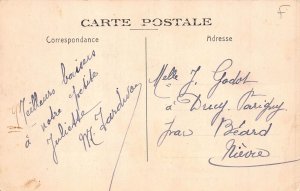 CARTE POSTALE
Correspondance
Adresse
F
Meilleurs baisers
à notre petite
Juliette
M.
Melle J. Godot
à Druy-Parigny
par Béard
Nièvre